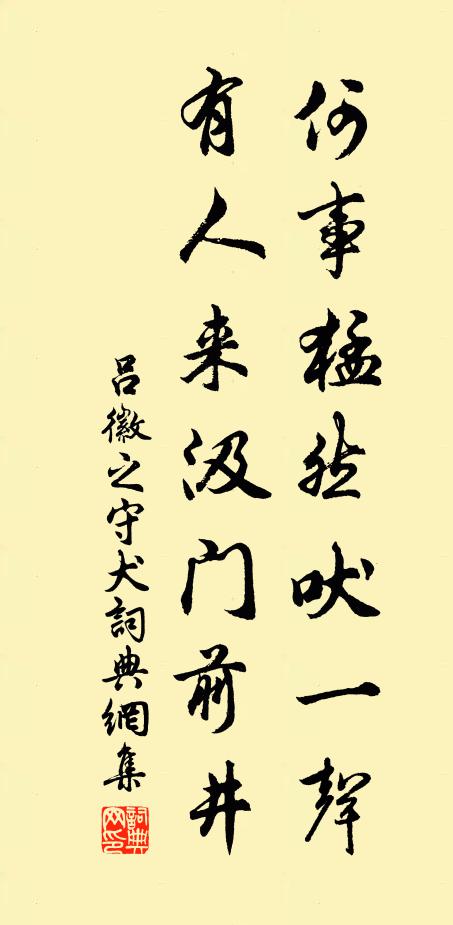 何事猛然吠一聲
有人来汲门前井
吕徽之守犬詞典網集
詞典网印